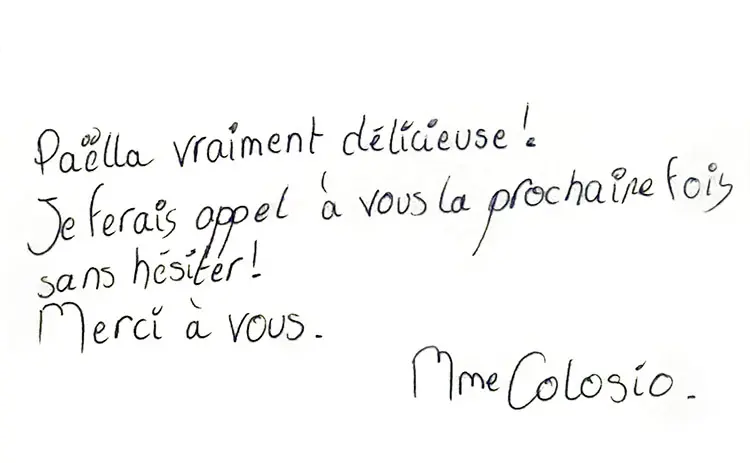 Paëlla vraiment délicieuse !
Je ferais appel à vous la prochaine fois
sans hésiter !
Merci à vous.
Mme Colosio.